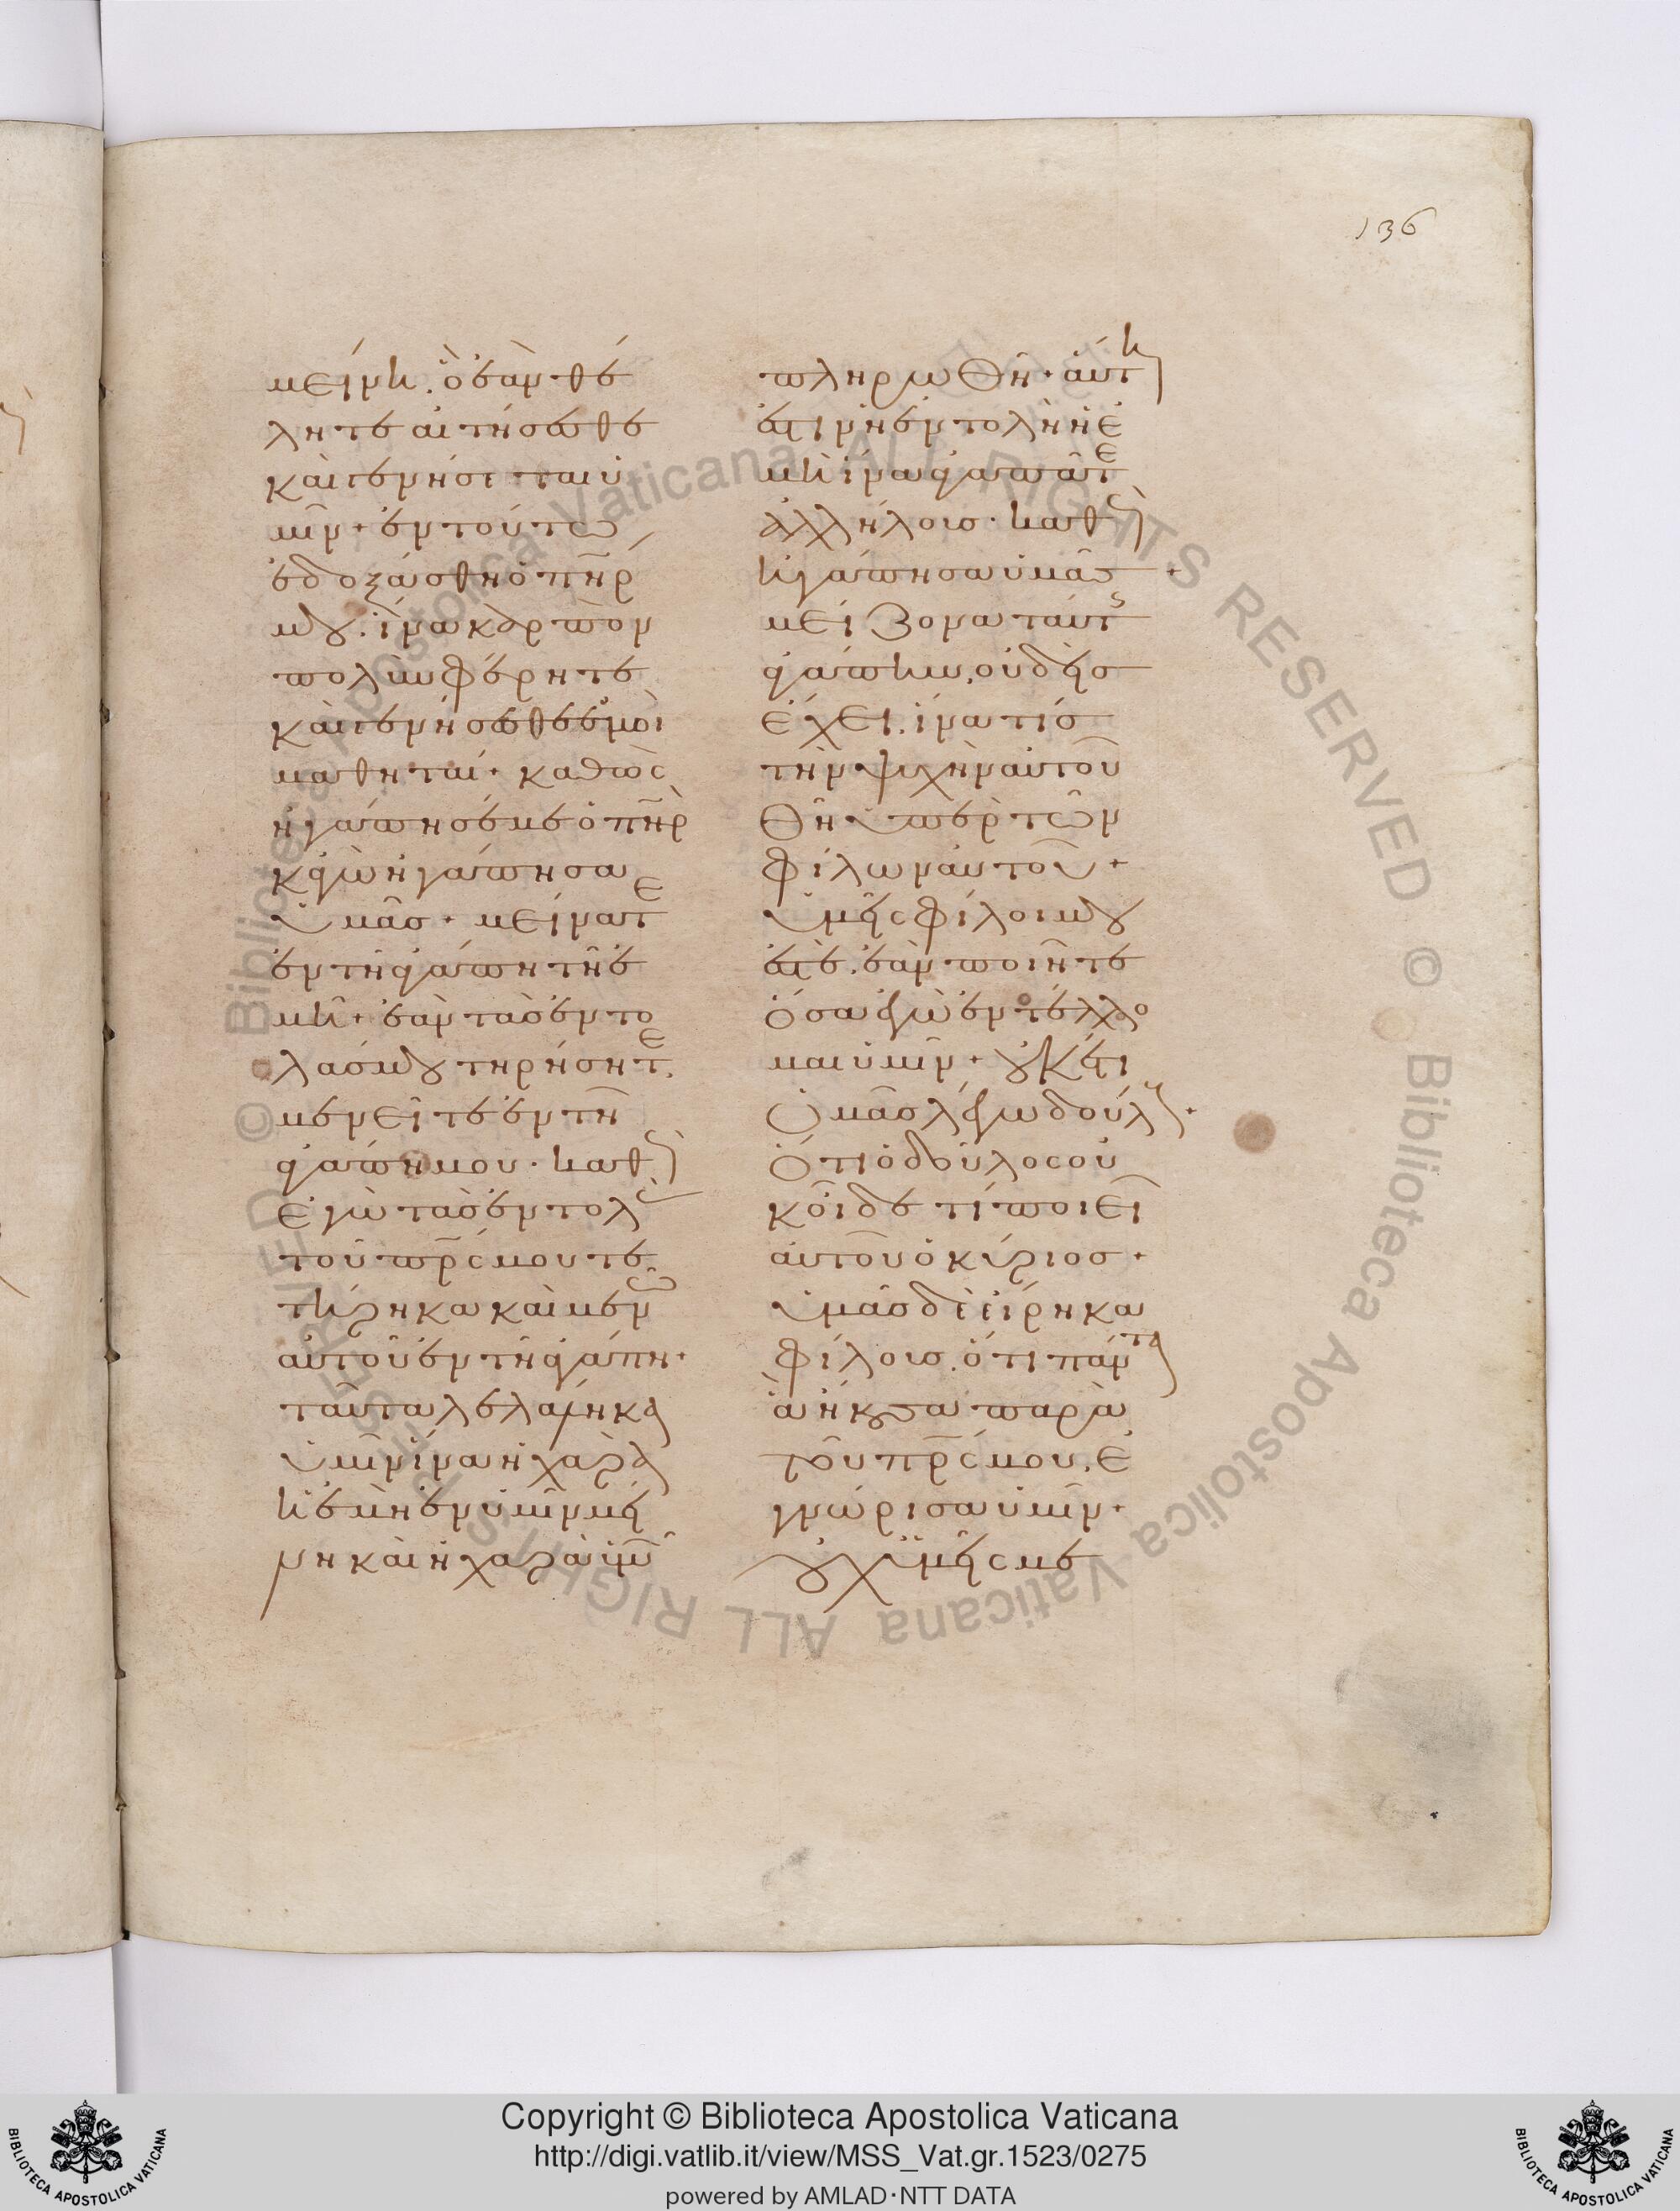 136
μείνη. ὃ ἐὰν θέ
λητε αἰτήσασθε
καὶ γενήσεται ὑ
μῖν· ἐν τούτω
ἐδοξάσθη ὁ πη̅ρ
μου. ἵνα καρπὸν
πολὺν φέρητε
καὶ γενήσεσθε ἐμοὶ
μαθηταί· καθὼς
ἠγάπησέ με ὁ πη̅ρ
κἀγὼ ἠγάπησα
ὑμᾶσ· μείνατε
ἐν τῆ ἀγάπη τῆ ἐ
μῆ· ἐὰν τὰσ ἐντο
λάσ μου τηρήσητε.
μενεῖτε ἐν τῆ
ἀγάπη μου. καθὼς
ἐγὼ τὰσ ἐντολὰς
τοῦ πρ̅ς μου τε
τήρηκα καὶ μένω
αὐτοῦ ἐν τῆ ἀγάπη·
ταῦτα λελάληκα
ὑμῖν ἵνα ἡ χαρὰ
ἡ ἐμὴ ἐν ὑμῖν μεί
νη καὶ ἡ χαρὰ ὑμῶν
πληρωθῆ· αὕτη
ἐστὶν ἡ ἐντολὴ ἡ ἐ
μὴ ἵνα ἀγαπᾶτε
ἀλλήλοισ. καθὼς
ἠγάπησα ὑμᾶσ·
μείζονα ταύτης
ἀγάπην, οὐδεὶσ
ἔχει. ἵνα τίσ
τὴν ψυχὴν αὐτοῦ
θῆ ὑπὲρ τῶν
φίλων αὐτοῦ·
ὑμεῖς φίλοι μου
ἐστὲ. ἐὰν ποιῆτε
ὅσα ἐγὼ ἐντέλλο
μαι ὑμῖν· οὐκέτι
ὑμᾶσ λέγω δούλους·
ὅτι ὁ δοῦλος οὐ
κ οἶδε τί ποιεῖ
αὐτοῦ ὁ κύριοσ·
ὑμᾶσ δὲ εἴρηκα
φίλουσ. ὅτι πάντα
ἃ ἤκουσα παρὰ
τοῦ πρ̅ς μου, ἐ
γνώρισα ὑμῖν·
οὐχ ὑμεῖς με
Copyright © Biblioteca Apostolica Vaticana
http://digi.vatlib.it/view/MSS_Vat.gr.1523/0275
powered by AMLAD·NTT DATA